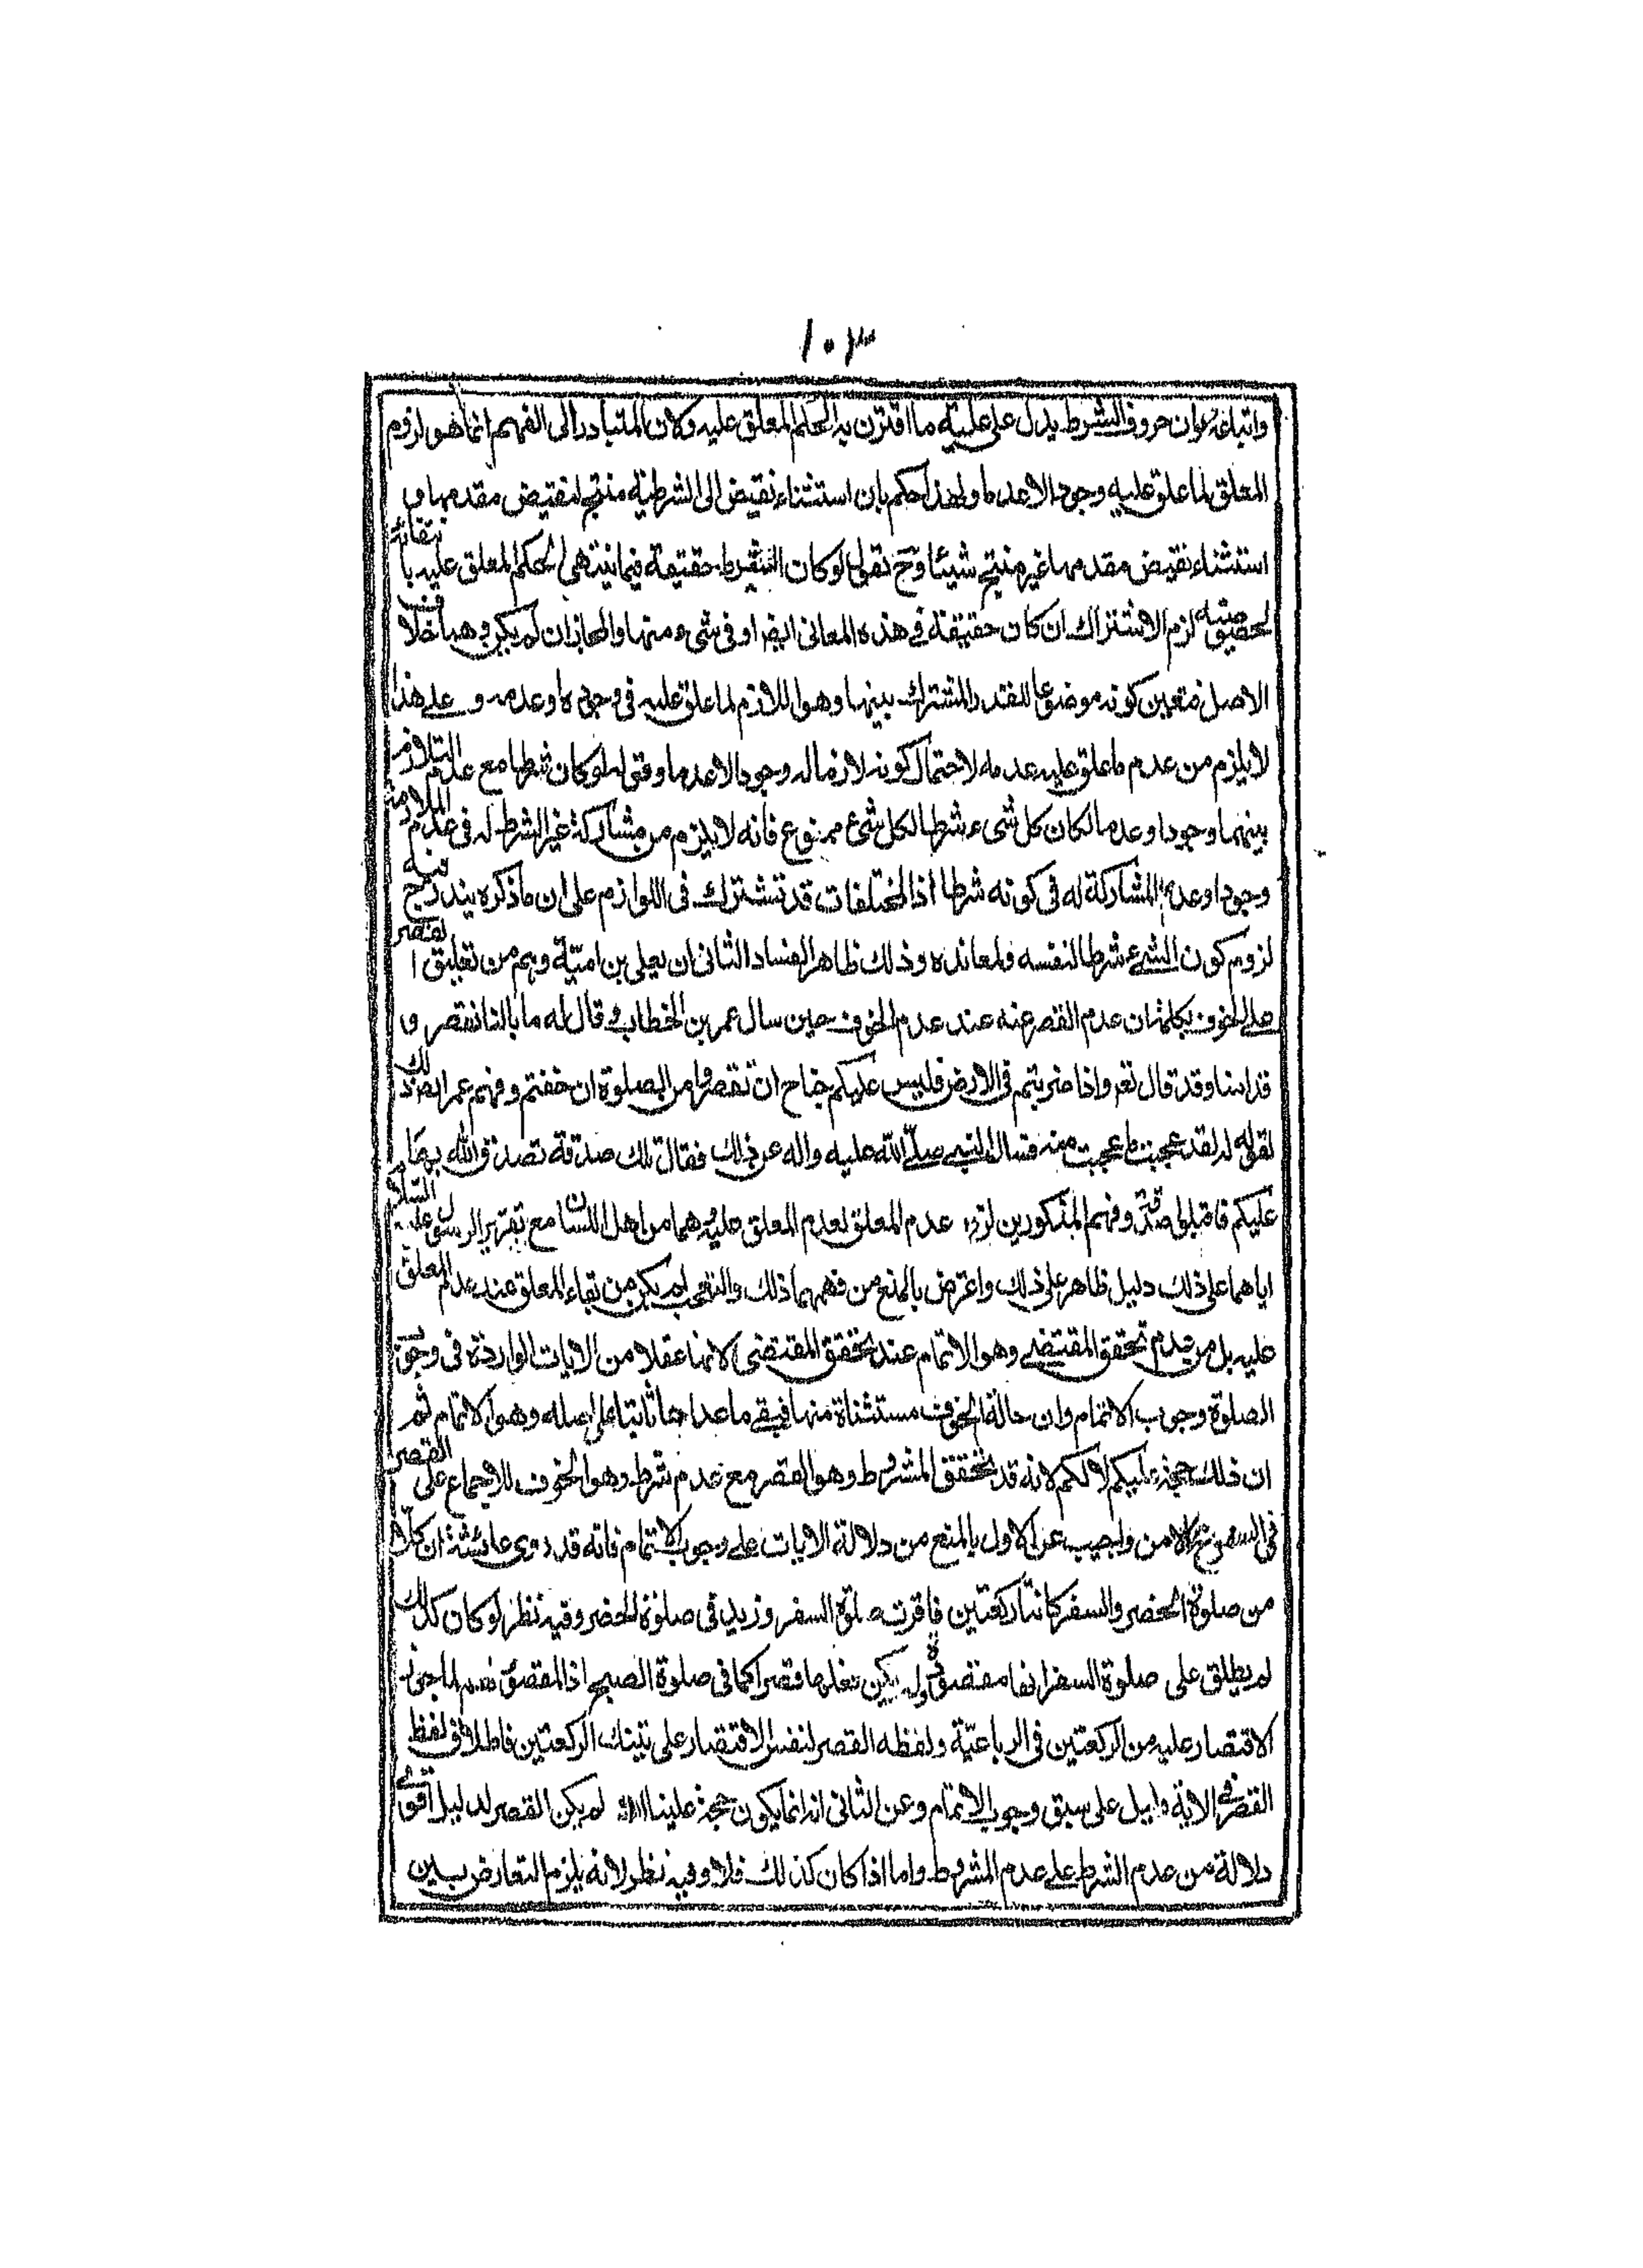 ١٠٣
واتباعه وان حروف الشرط يدل على علية ما اقترن به الحكم المعلق عليه ولان المتبادر الى الفهم انما هو لزوم
المعلق لما علق عليه وجودا لا عدما ولهذا حكم بان استثناء نقيض الى الشرطية منتج لنقيض مقدمها و
استثناء نقيض مقدمها غير منتج شيئا وح نقول لو كان الشرط حقيقة فيما ينتهى الحكم المعلق عليه بانتفائه
لزم الاشتراك ان كان حقيقة فى هذه المعانى ايضا او فى شىء منها والمجاز ان لم يكن وهما خلاف
الاصل فتعين كونه موضوعا للقدر المشترك بينها وهو اللازم لما علق عليه فى وجوده او عدمه و على هذا
لا يلزم من عدم ما علق عليه عدمه لاحتمال كونه لازما له وجودا لا عدما وقوله لو كان شرطا مع عدم التلازم
بينهما وجودا وعدما لكان كل شىء شرطا لكل شىء ممنوع فانه لا يلزم من مشاركة غير الشرط له فى عدم الملازمة
وجودا وعدما المشاركة له فى كونه شرطا اذ المختلفات قد تشترك فى اللوازم على ان ما ذكره يندرج فيه
لزوم كون الشىء شرطا لنفسه ولمعانده وذلك ظاهر الفساد الثانى ان يعلى بن امية فهم من تعليق القصر
على الخوف بكلمة ان عدم القصر عنه عند عدم الخوف حين سال عمر بن الخطاب و قال له ما بالنا نقصر و
قد امنا وقد قال تعر واذا ضربتم فى الارض فليس عليكم جناح ان تقصروا من الصلوة ان خفتم وفهم عمر ايضا ذلك
لقوله له لقد عجبت ما عجبت منه فسالت النبى صلى الله عليه واله عن ذلك فقال تلك صدقة تصدق الله بها
عليكم فاقبلوا صدقته وفهم المذكورين لزوم عدم المعلق لعدم المعلق عليه وهما من اهل اللسان مع تقرير الرسول عليه السلام
اياهما على ذلك دليل ظاهر على ذلك واعترض بالمنع من فهمهما ذلك والتعجب لم يكن من بقاء المعلق عند عدم المعلق
عليه بل من عدم تحقق المقتضى وهو الاتمام عند تحقق المقتضى لانهما عقلا من الايات الواردة فى وجوب
الصلوة وجوب الاتمام وان حالة الخوف مستثناة منها فيبقى ما عداها ثابتا على اصله وهو الاتمام ثم
ان ذلك حجة عليكم لا لكم لانه قد تحقق المشروط وهو القصر مع عدم شرطه وهو الخوف للاجماع على القصر
فى السفر مع الامن واجيب عن الاول بالمنع من دلالة الايات على وجوب الاتمام فانه قد روى عائشة ان كلا
من صلوة الحضر والسفر كانتا ركعتين فاقرت صلوة السفر وزيد فى صلوة الحضر وفيه نظر لو كان كذلك
لم يطلق على صلوة السفر انها مقصورة ولم يكن فعلها قصرا كما فى صلوة الصبح اذ المقصور اسم لما جوز
الاقتصار عليه من الركعتين فى الرباعية ولفظه القصر لنفس الاقتصار على تينك الركعتين فاطلاق لفظ
القصر فى الاية دليل على سبق وجوب الاتمام وعن الثانى انه انما يكون حجة علينا لو لم يكن القصر لدليل اقوى
دلالة من عدم الشرط على عدم المشروط واما اذا كان كذلك فلا وفيه نظر لانه يلزم التعارض بين